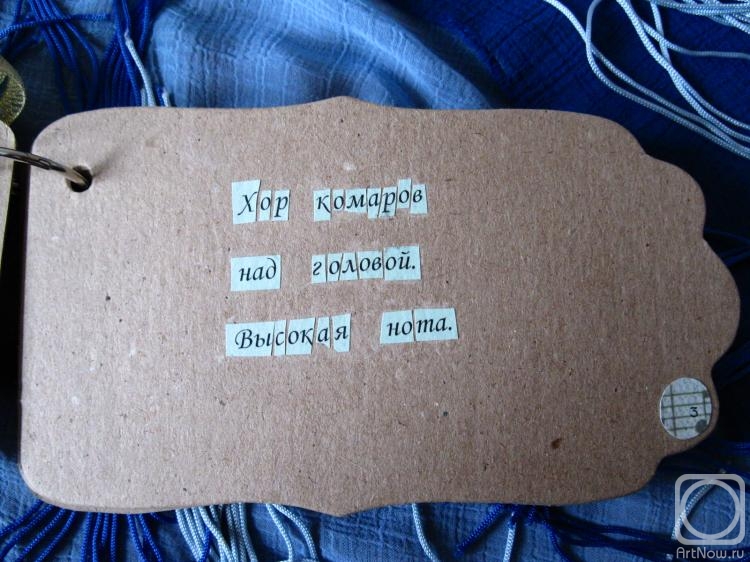 Хор комаров
над головой.
Высокая нота.
3
ArtNow.ru